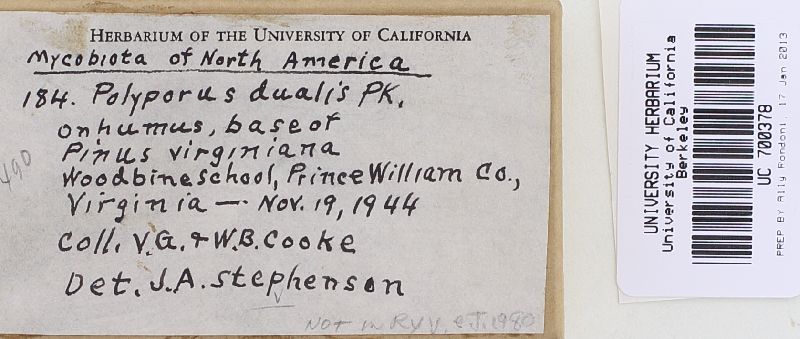 HERBARIUM OF THE UNIVERSITY OF CALIFORNIA
Mycobiota of North America
184. Polyporus dualis PK.
on humus, base of
Pinus virginiana
Woodbine school, Prince William Co.,
Virginia — Nov. 19, 1944
Coll. V.G. & W.B. Cooke
Det. J.A. Stephenson
490
NOT IN RVV. & J. 1980
UNIVERSITY HERBARIUM
University of California
Berkeley
UC 700378
PREP BY Ally Rondoni, 17 Jan 2013